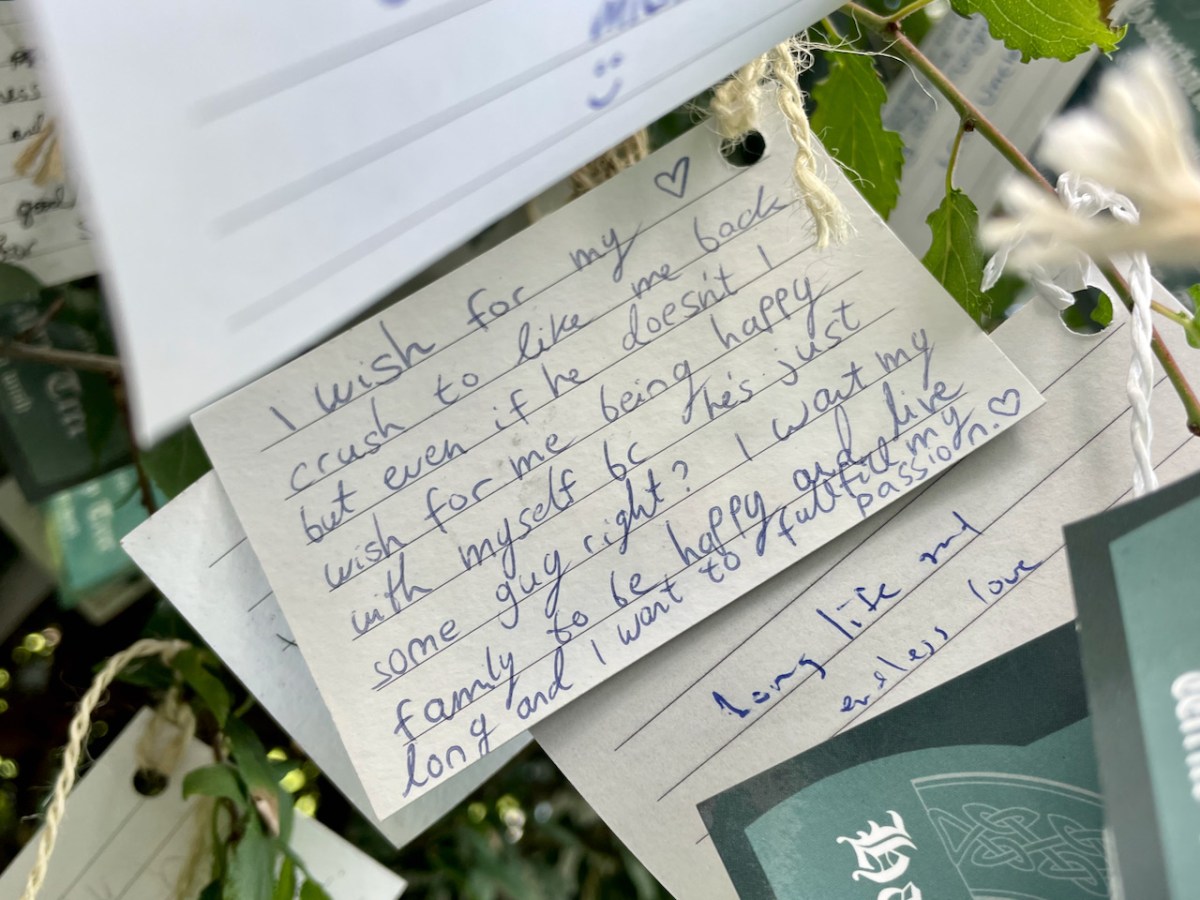 I wish for my ♡
crush to like me back
but even if he doesn't I
wish for me being happy
with myself bc he's just
some guy right? I want my
family to be happy and live
long and I want to fulfill my
passion. ♡
long life and
endless love
Tree
goal